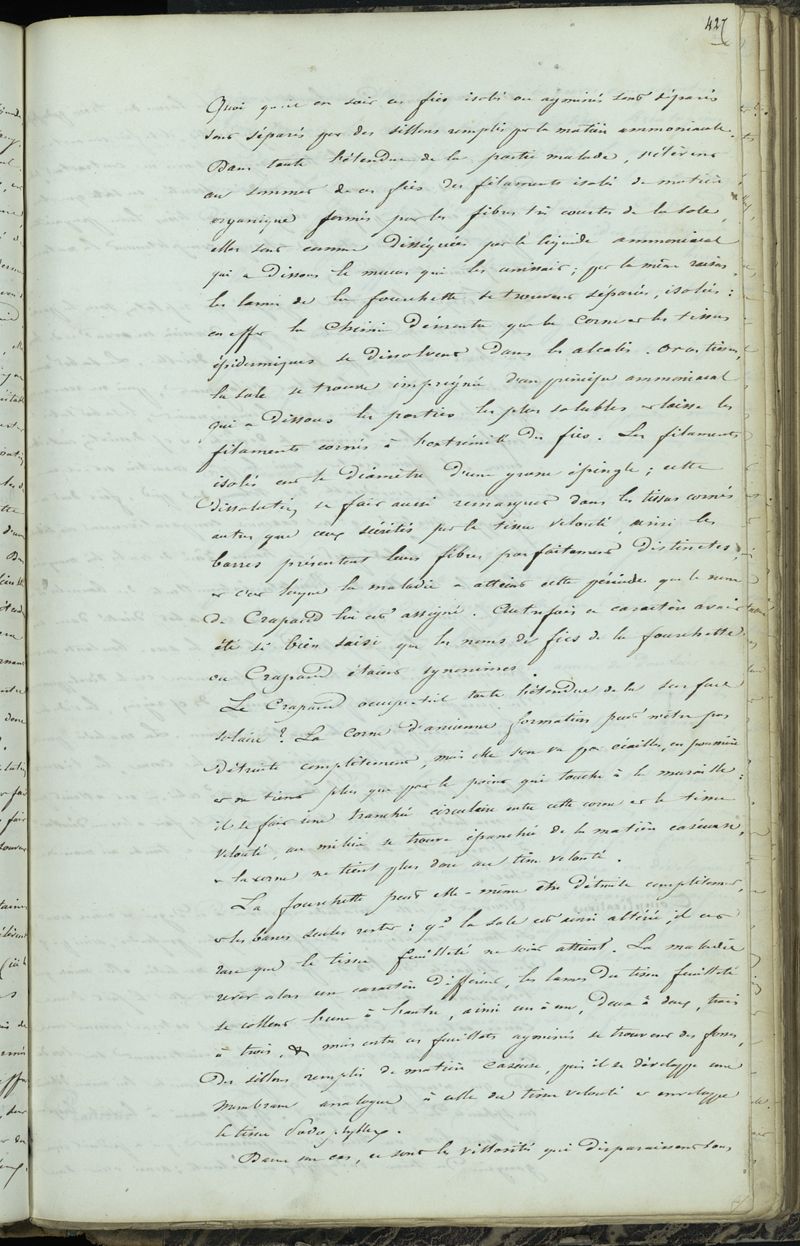 427
Quoi qu'il en soit ces fics isolés ou agminés sont séparés
sont séparés par des sillons remplis par la matière ammoniacale.
Dans toute l'étendue de la partie malade, s'élèvent
au sommet de ces fics des filaments isolés de matière
organique formés par les fibres très courtes de la sole
elles sont comme disséquées par le liquide ammoniacal
qui a dissous le mucus qui les unissait; par la même raison,
les lames de la fourchette se trouvent séparées, isolées:
en effet la Chimie démontre que la Corne et les tissus
épidermiques se dissolvent dans les alcalis. or ce tissu,
la sole se trouve imprégnée d'un principe ammoniacal
qui a dissous les parties les plus solubles et laisse les
filaments cornés à l'extrémité des fics. Les filaments
isolés ont le diamètre d'une grosse épingle; cette
dissolution se fait aussi remarquer dans les tissus cornés
autres que ceux sécrétés par le tissu velouté, ainsi les
barres présentent leurs fibres parfaitement distinctes,
et c'est lorsque la maladie a atteint cette période que le nom
de Crapaud lui est assigné. Autrefois ce caractère avait
été si bien saisi que les noms de fics de la fourchette
ou Crapaud étaient synonimes.
Le Crapaud occupe-t-il toute l'étendue de la surface
solaire? La Corne d'ancienne formation peut n'être pas
détruite complètement, mais elle s'en va par écailles, en poussière
et ne tient plus que par le point qui touche à la muraille:
il se fait une tranchée circulaire entre cette corne et le tissu
velouté, au milieu se trouve épanchée de la matière caséeuse,
et la corne ne tient plus donc au tissu velouté.
La fourchette peut elle-même être détruite complètement,
et les barres seules rester: qd la sole est ainsi altérée, il est
rare que le tissu feuilleté ne soit atteint. La maladie
revêt alors un caractère différent, les lames du tissu feuilleté
se collent l'une à l'autre, ainsi un à un, deux à deux, trois
à trois, & mais entre ces feuillets agminés se trouvent des fosses,
des sillons remplis de matière caséeuse, puis il se développe une
membrane analogue à celle du tissu velouté et enveloppe
le tissu podophylleux.
Dans un cas, ce sont les villosités qui disparaissent sous